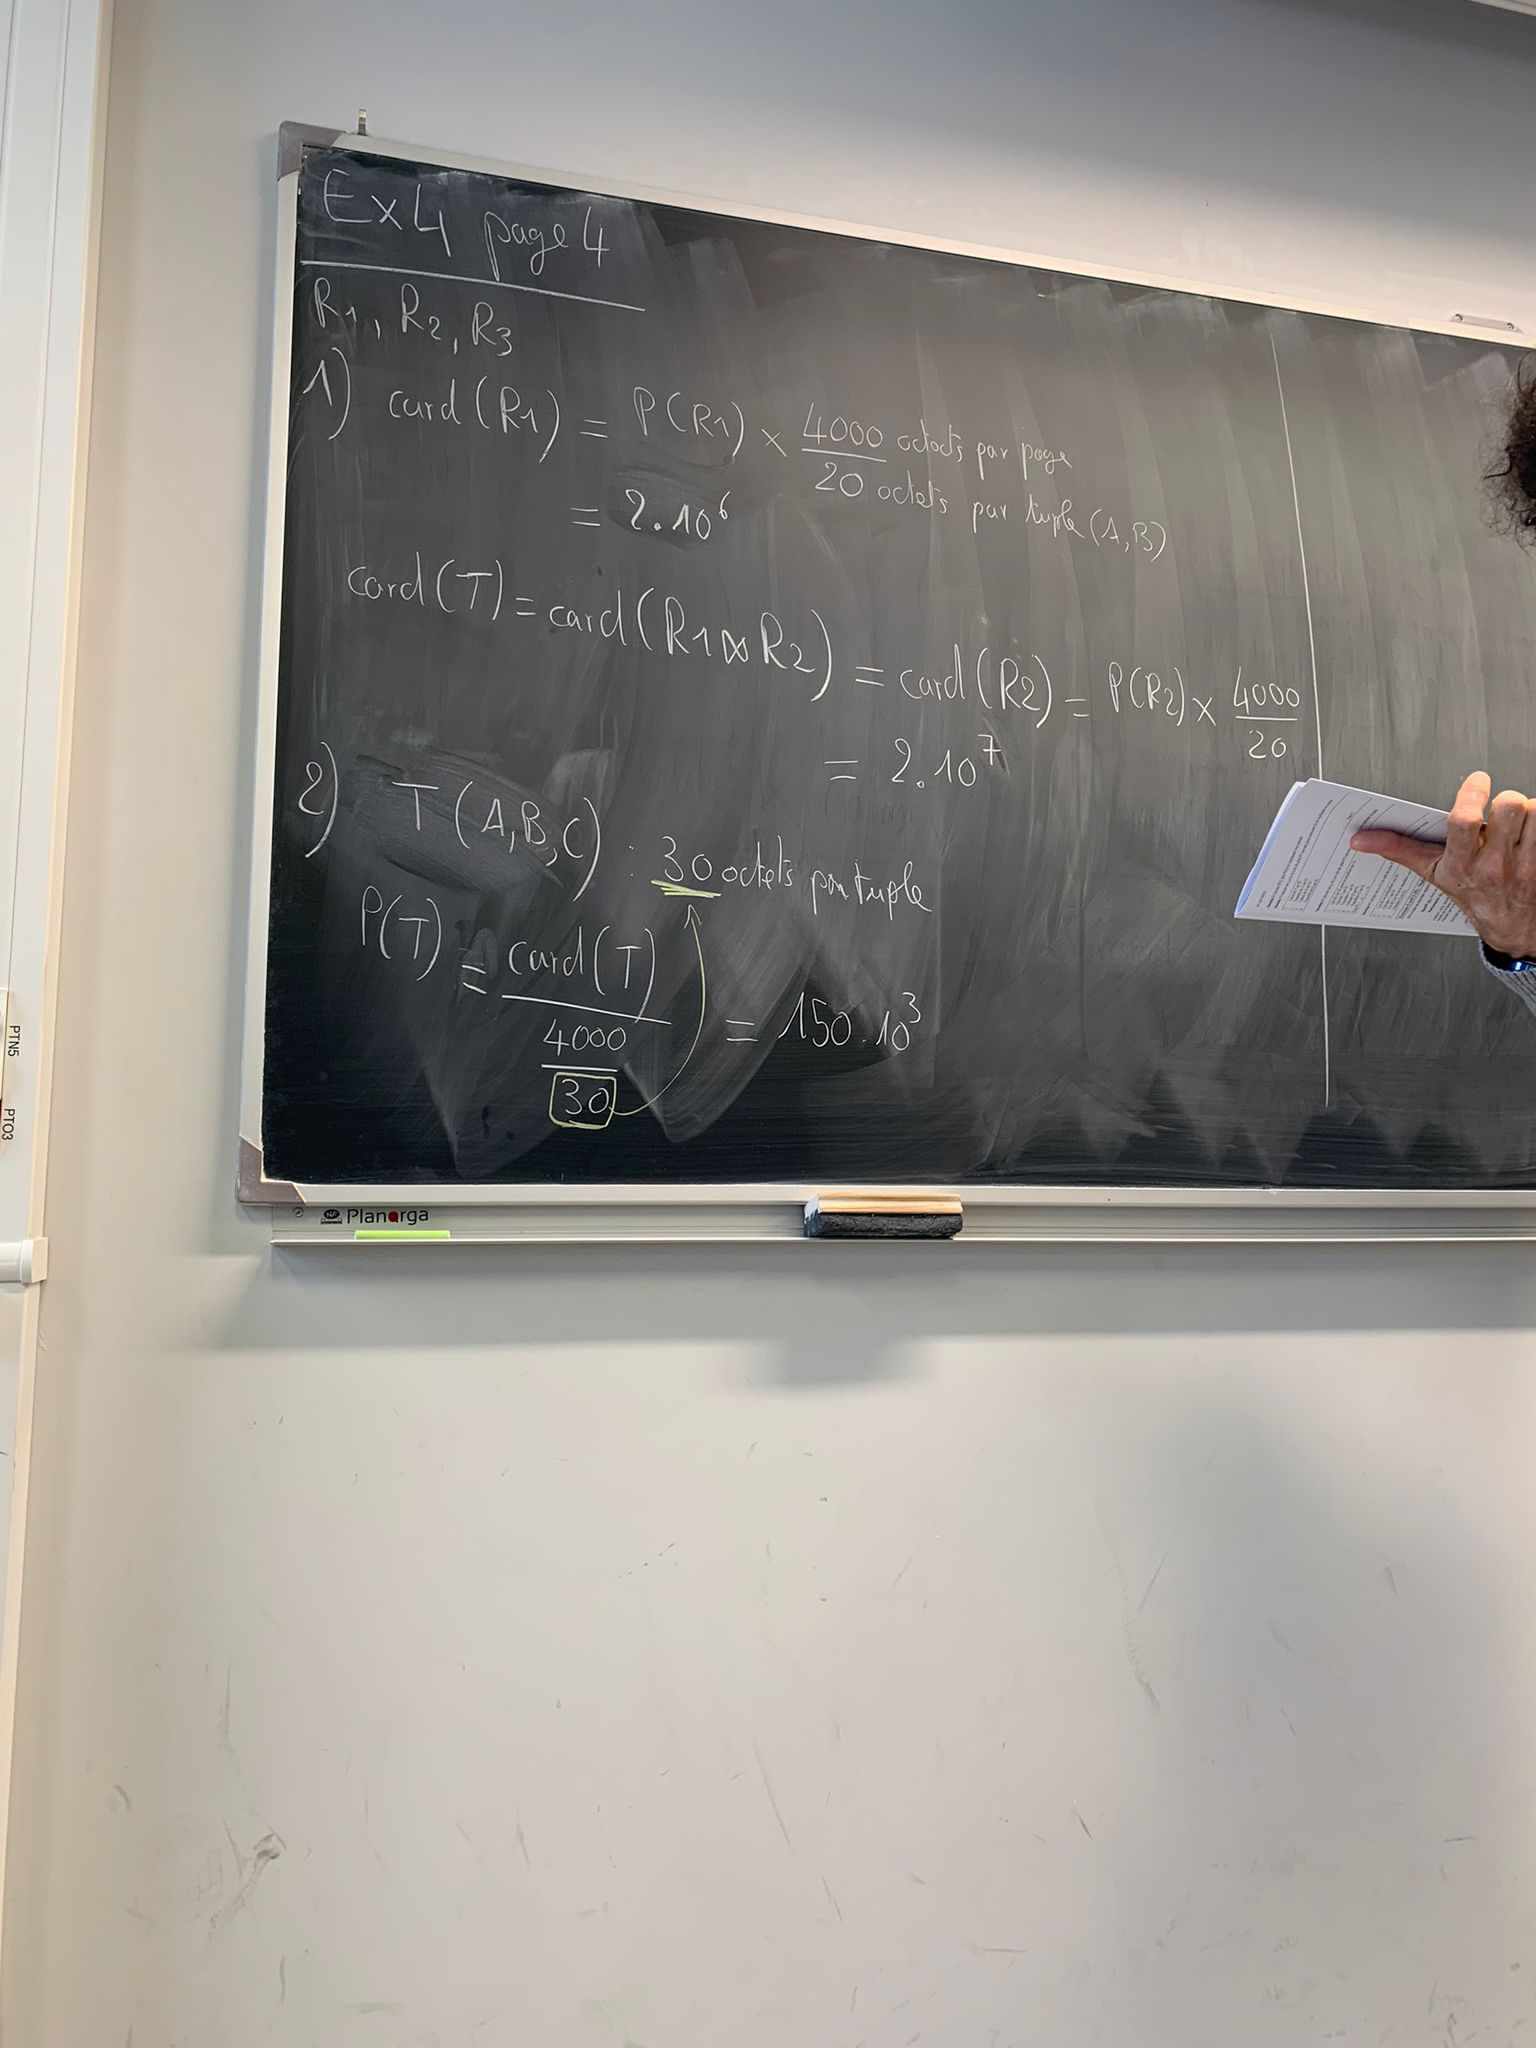 Ex4 page 4
R1, R2, R3
1) card(R1) = P(R1) × 4000/20 octets par page
octets par tuple (A,B)
= 2.10^6
card(T) = card(R1⋈R2) = card(R2) = P(R2) × 4000/20
= 2.10^7
2) T(A,B,C) : 30 octets par tuple
P(T) = card(T) / (4000/30) = 150.10^3
Planorga
PTN5
PTO3